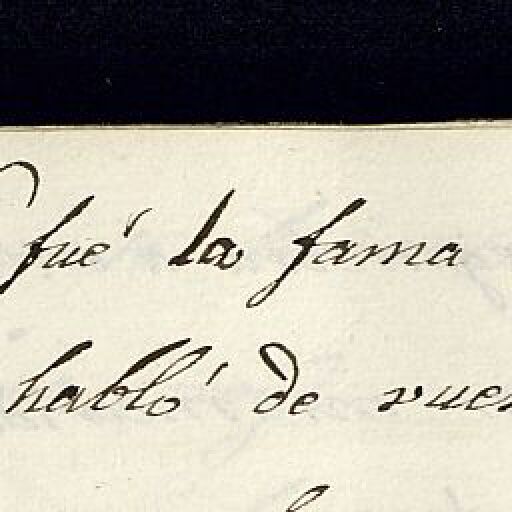 fué la fama
habló de vue